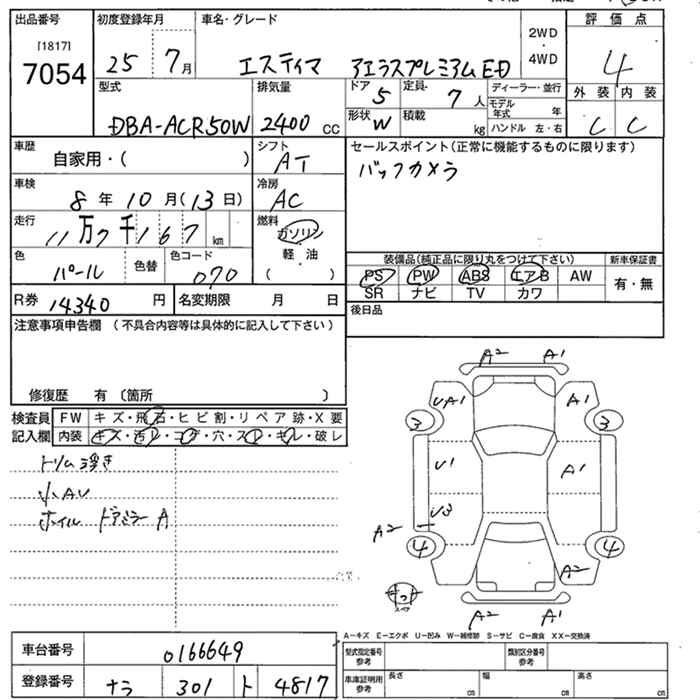 出品番号 初度登録年月 車名・グレード 2WD・4WD 評価点
[1817]
7054 25 7月 エスティマ アエラスプレミアムED 4
型式 排気量 ドア 5 定員 7人 ディーラー・並行 外装 内装
DBA-ACR50W 2400 CC 形状 W 積載 kg モデル年式 年 ハンドル 左・右 C C
車歴 自家用・( ) シフト AT セールスポイント(正常に機能するものに限ります)
バックカメラ
車検 8年10月(13日) 冷房 AC
走行 11万7千167km 燃料 ガソリン 軽・油 ( )
色 パール 色替 色コード 070
装備品(純正品に限り丸をつけて下さい) 新車保証書
PS PW ABS エアB AW 有・無
SR ナビ TV カワ
R券 14340円 名変期限 月 日 後日品
注意事項申告欄(不具合内容等は具体的に記入して下さい)
修復歴 有〔箇所 〕
検査員 FW キズ・飛石・ヒビ割・リペア跡・X要
記入欄 内装 キズ・汚レ・コゲ・穴・スレ・キレ・破レ
トリム浮き
小AU
ホイル ドアミラーA
A2 A1
UA1 A1
3 3
U1 A1
U3
A2
4 4
A2
スペア
A2 A1
A-キズ E-エクボ U-凹み W-補修跡 S-サビ C-腐食 XX-交換済
車台番号 0166649
登録番号 ナラ 301 ト 4817
型式指定番号 参考 類別区分番号 参考
車庫証明用 参考 長さ cm 幅 cm 高さ cm